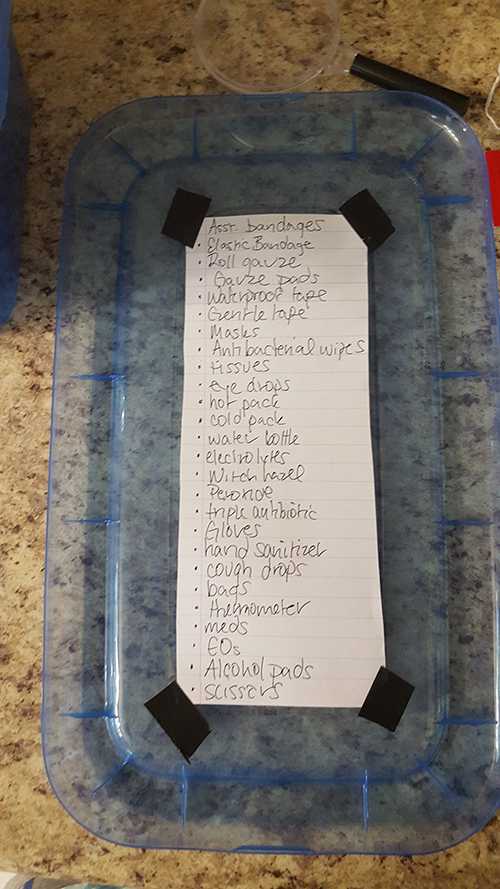 Asst. bandages
· Elastic Bandage
· Roll gauze
· Gauze pads
· Waterproof tape
· Gentle tape
· Masks
· Antibacterial wipes
· tissues
· eye drops
· hot pack
· cold pack
· water bottle
· electrolytes
· Witch hazel
· Peroxide
· triple antibiotic
· Gloves
· hand sanitizer
· cough drops
· bags
· thermometer
· meds
· EOs
· Alcohol pads
· scissors